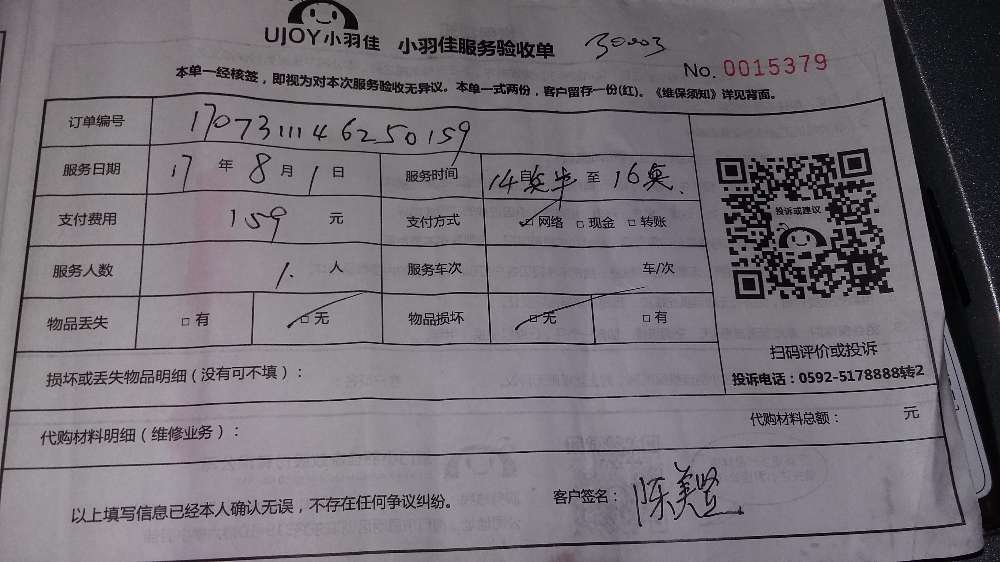 UJOY小羽佳 小羽佳服务验收单 30003
No. 0015379
本单一经核签，即视为对本次服务验收无异议。本单一式两份，客户留存一份(红)。《维保须知》详见背面。
订单编号 1707311146250159
服务日期 17 年 8 月 1 日 服务时间 14自点半 至 16点
支付费用 159 元 支付方式 □ 网络 □ 现金 □ 转账
服务人数 1. 人 服务车次 车/次
物品丢失 □ 有 □ 无 物品损坏 □ 无 □ 有
投诉或建议
扫码评价或投诉
投诉电话：0592-5178888转2
损坏或丢失物品明细（没有可不填）：
代购材料明细（维修业务）： 代购材料总额： 元
以上填写信息已经本人确认无误，不存在任何争议纠纷。 客户签名： 陈美